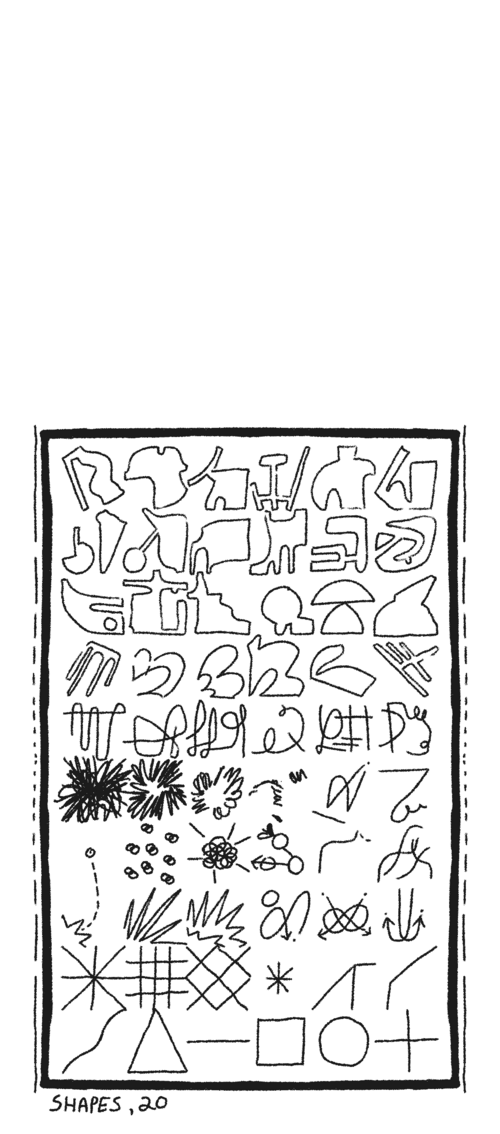 SHAPES, 20